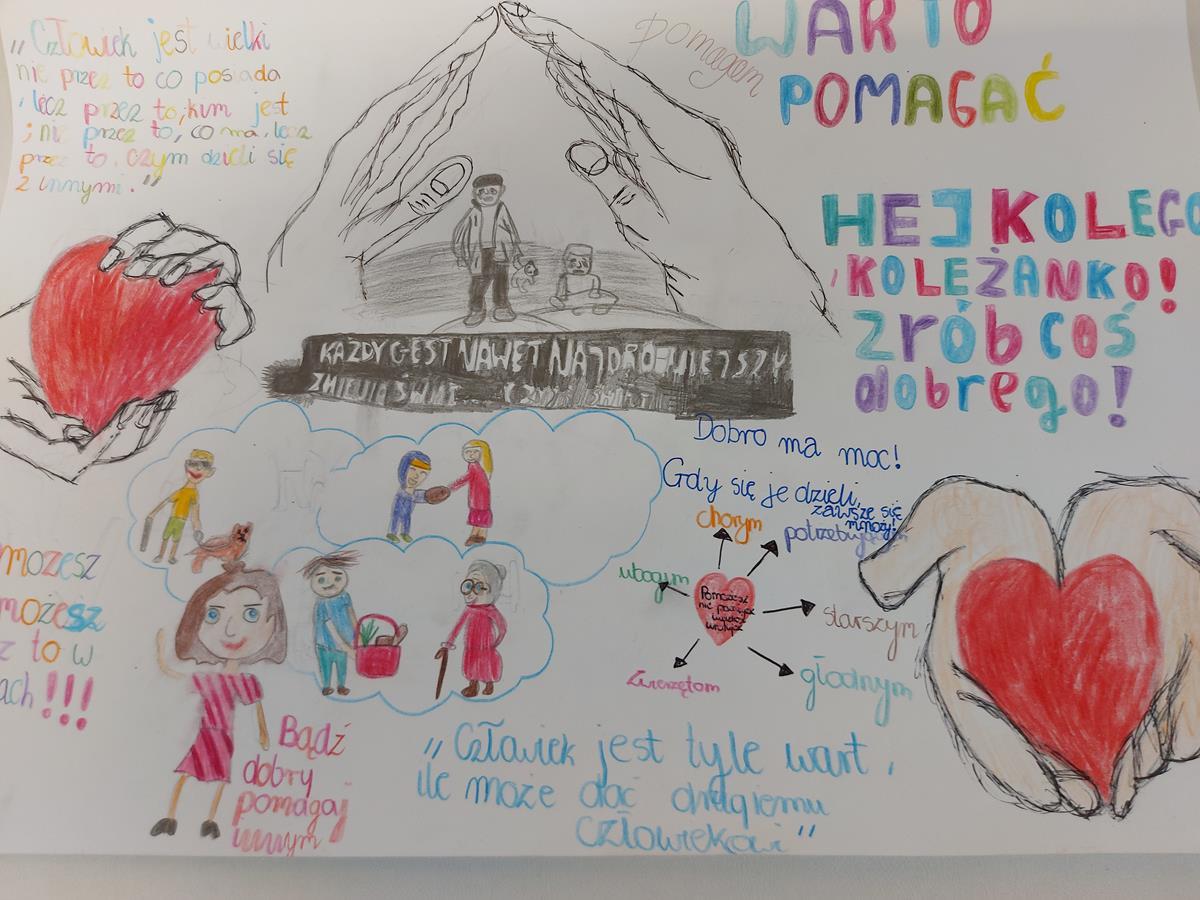 „Człowiek jest wielki
nie przez to co posiada
lecz przez to, kim jest
; nie przez to, co ma, lecz
przez to, czym dzieli się
z innymi."
pomagam
WARTO
POMAGAĆ
HEJ KOLEGO
, KOLEŻANKO!
Zrób coś
dobrego!
KAŻDY GEST NAWET NAJDROBNIEJSZY
ZMIENIA ŚWIAT
Dobro ma moc!
Gdy się je dzieli,
zawsze się
mnoży!
chorym
potrzebującym
ubogim
starszym
Zwierzętom
głodnym
możesz
możesz
z to w
ach!!!
Bądź
dobry
pomagaj
innym
„Człowiek jest tyle wart,
ile może dać drugiemu
człowiekowi"